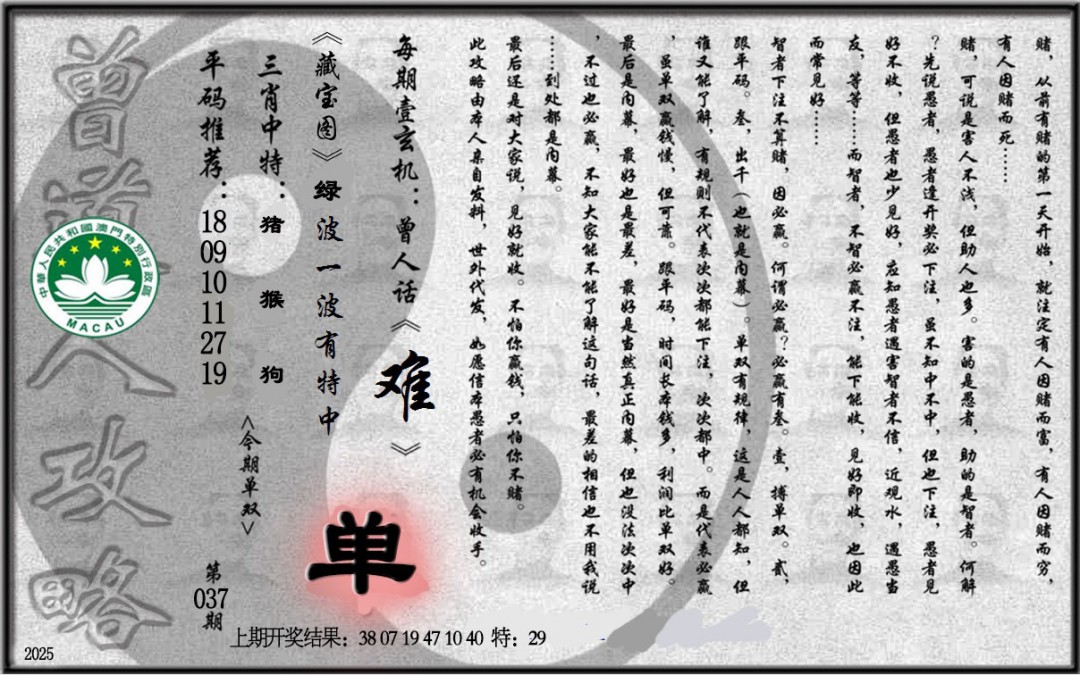 赌，从前有赌的第一天开始，就注定有人因赌而富，有人因赌而穷，
有人因赌而死……
赌，可说是害人不浅，但助人也多。害的是愚者，助的是智者。何解
？先说愚者，愚者逢开奖必下注，虽不知中不中，但也下注，愚者见
好不收，但愚者也少见好，应知愚者遇害智者不信，近观水，遇愚当
友，等等……而智者，不智必赢不注，能下能收，见好即收，也因此
而常见好……
智者下注不算赌，因必赢。何谓必赢？必赢有叁。壹，搏单双。贰，
跟平码。叁，出千（也就是内幕）。单双有规律，这是人人都知，但
谁又能了解，有规则不代表次次都能下注，次次都中。而是代表必赢
，虽单双赢钱慢，但可靠。跟平码，时间长本钱多，利润比单双好。
最后是内幕，最好也是最差，最好是当然真正内幕，但也没法次次中
，不过也必赢，不知大家能不能了解这句话，最差的相信也不用我说
……到处都是内幕。
最后还是对大家说，见好就收。不怕你赢钱，只怕你不赌。
此攻略由本人亲自发料，世外代发，如愿信本愚者必有机会收手。
每期壹玄机：曾人话《难》
《藏宝图》绿波一波有特中
三肖中特：猪 猴 狗
平码推荐：18 09 10 11 27 19
<今期单双>
单
第037期
曾道人攻略
中華人民共和國澳門特別行政區
MACAU
上期开奖结果：38 07 19 47 10 40 特：29
2025